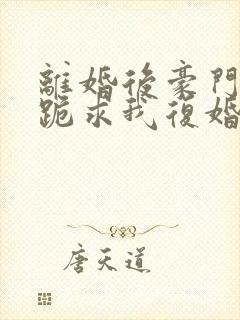 離婚後豪門
跪求我復婚
唐天道